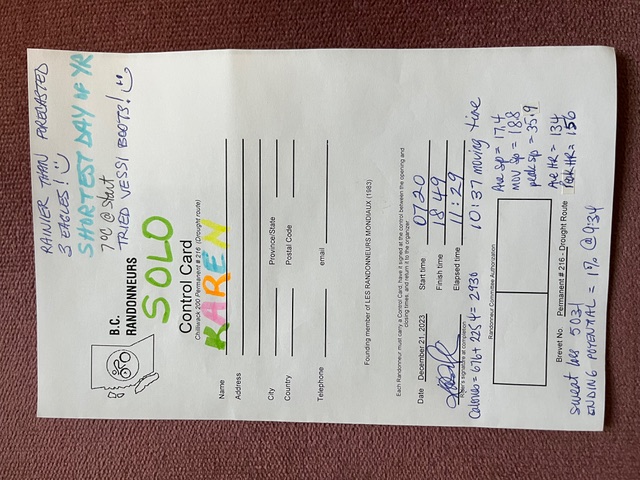 RAINIER THAN FORECASTED
3 EAGLES!
SHORTEST DAY of YR
7°C @ start
TRIED VESSI BOOTS!
B.C.
RANDONNEURS
SOLO
Control Card
Chilliwack 200 Permanent # 216 (Drought route)
KAREN
Name
Address
City
Province/State
Country
Postal Code
Telephone
email
Founding member of LES RANDONNEURS MONDIAUX (1983)
Each Randonneur must carry a Control Card, have it signed at the control between the opening and
closing times, and return it to the organizer.
Date December 21, 2023
Start time 07:20
Finish time 18:49
Elapsed time 11:29
Rider's signature at completion
10:37 moving time
Randonneur Committee Authorization
Ave sp = 17.4
MOV sp = 18.8
peak sp = 35.9
Ave HR = 134
Peak HR = 156
Brevet No. Permanent # 216 - Drought Route
Sweat loss 5031
ENDING POTENTIAL = 1% @ 9:34